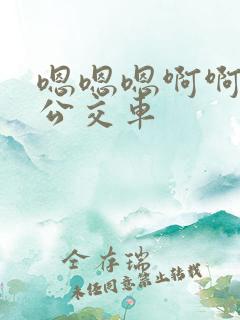 嗯嗯嗯啊啊
公交车
全存瑞
未经同意禁止转载